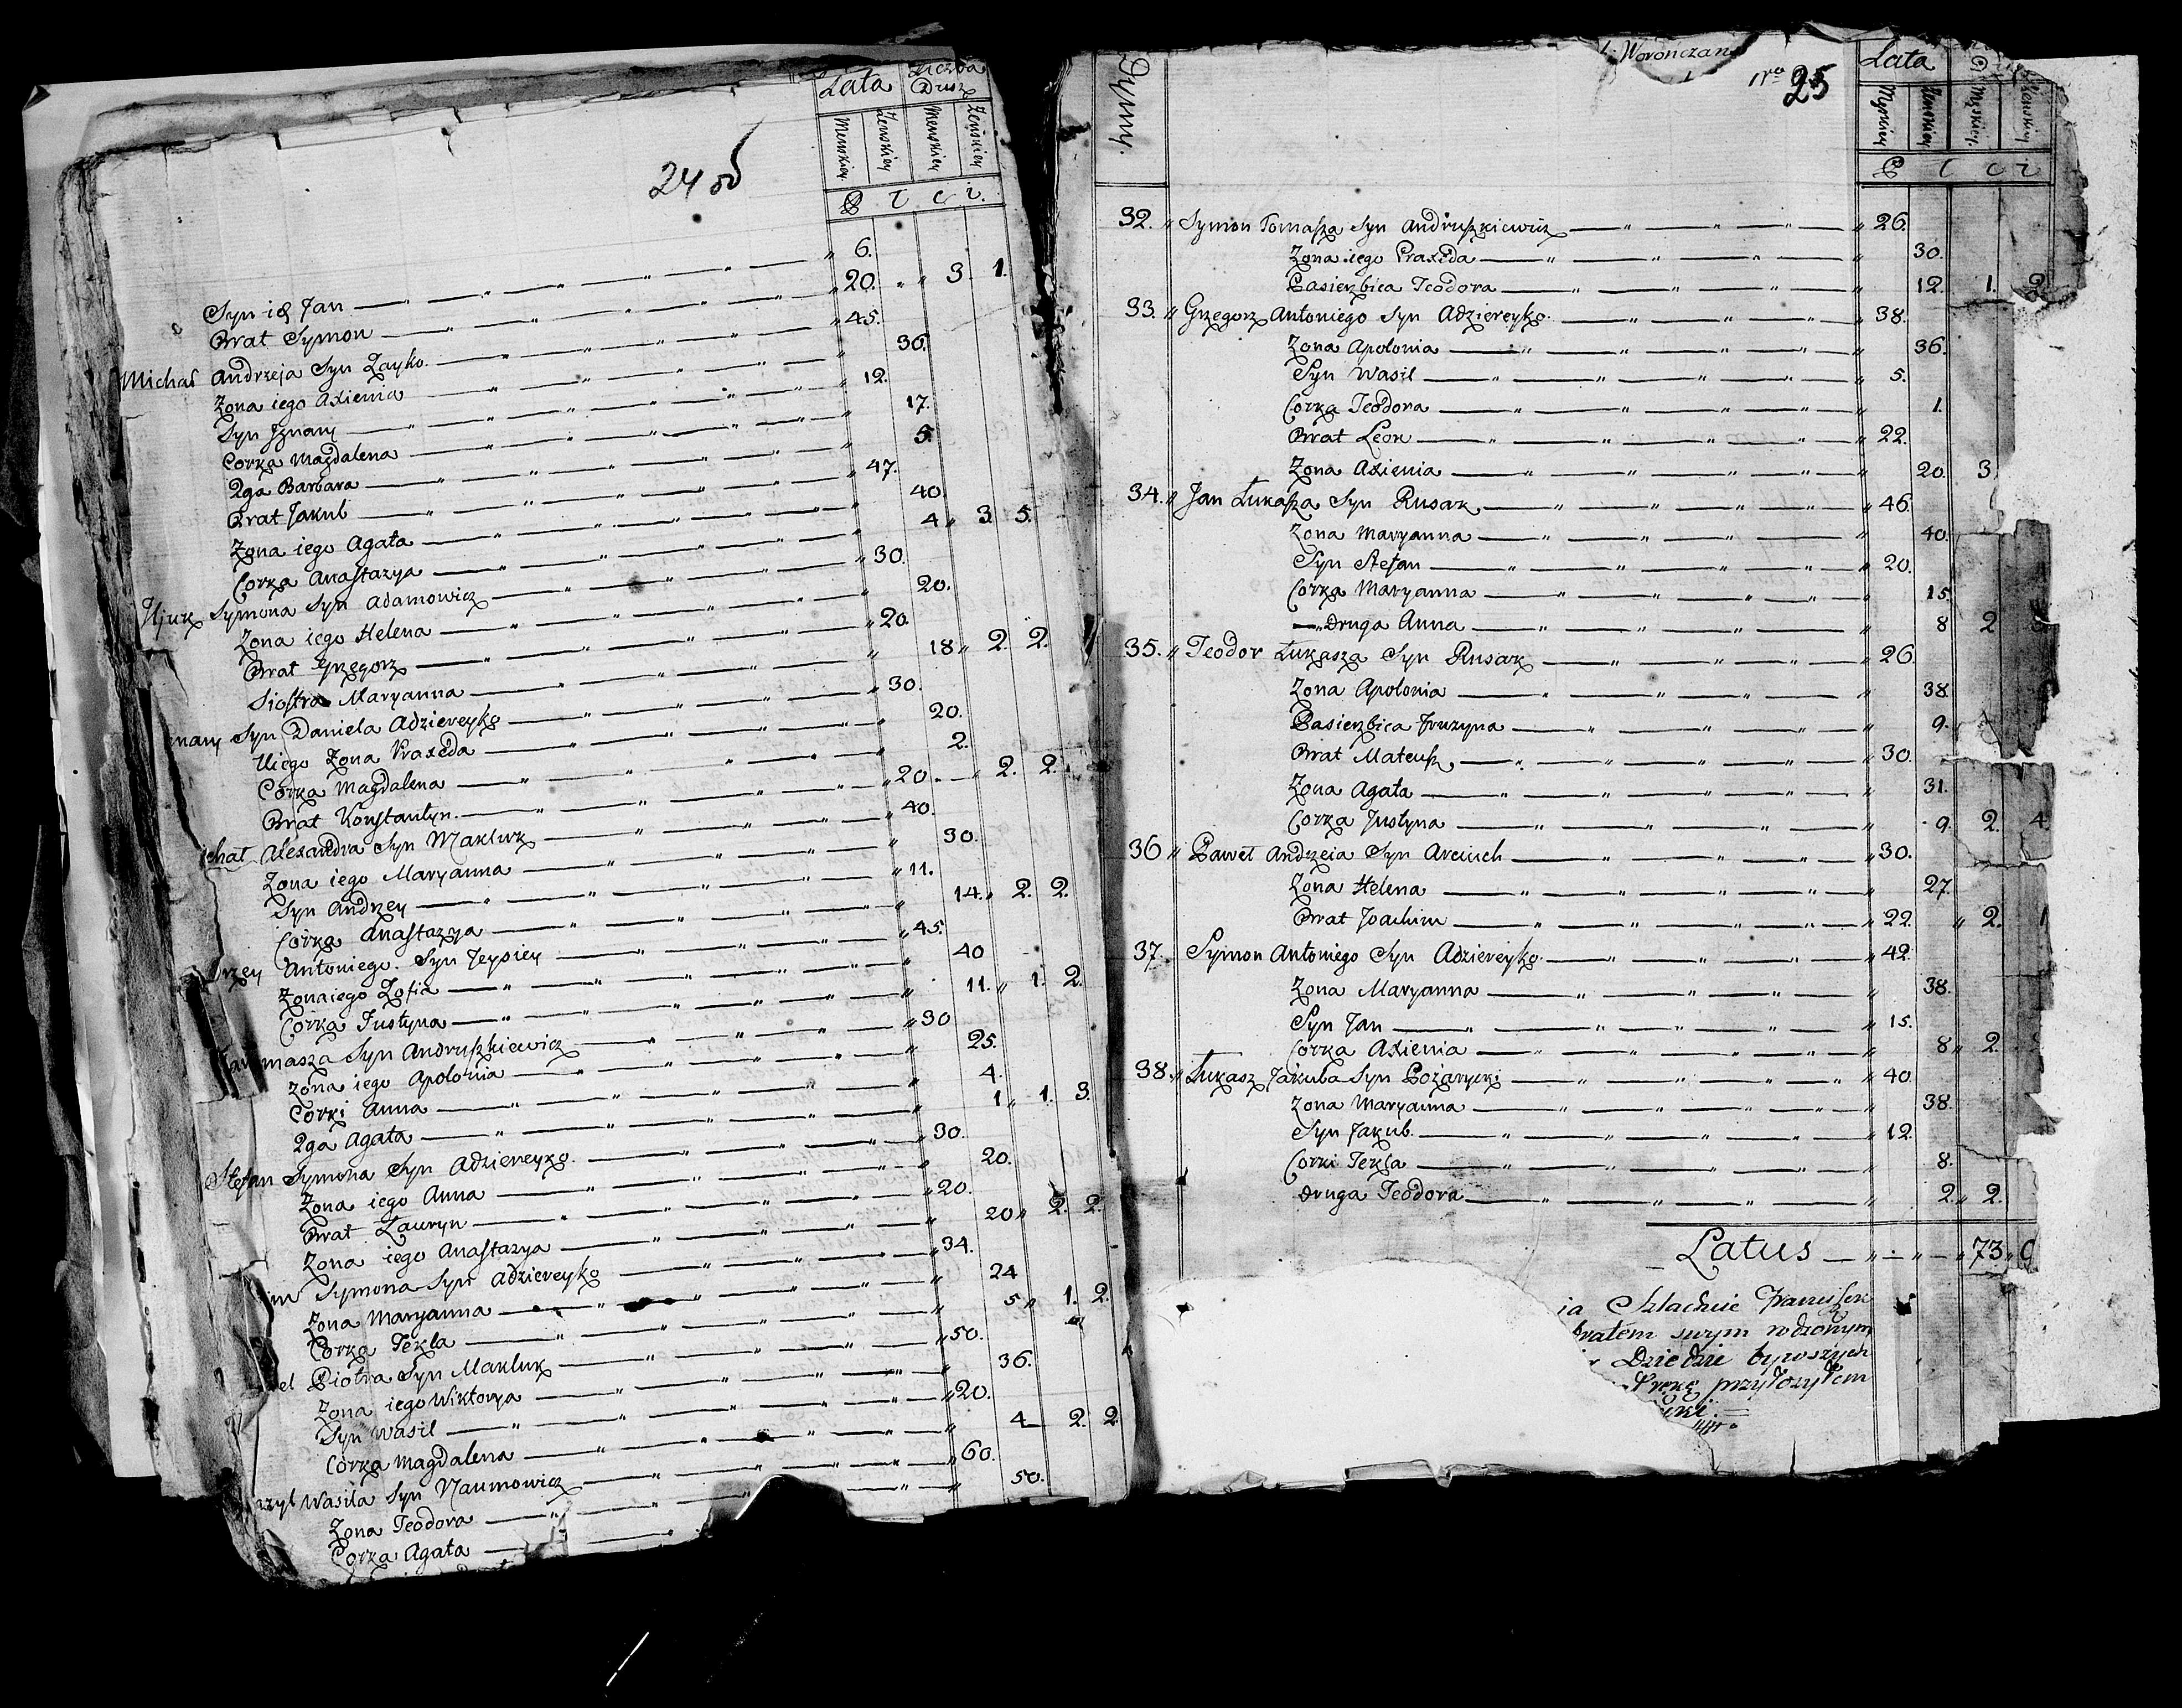 24 об
Lata Liczba Dusz
Menskiey Zenskiey Menskiey Zenskiey
Syn ich Jan 6.
Brat Symon 20. 3. 1.
Michał Andrzeja Syn Zayko 45.
Zona iego Axienia 30.
Syn Jgnacy 12.
Corka Magdalena 17.
2ga Barbara 5.
Brat Jakub 47.
Zona iego Agata 40
Corka Anastazya 4 3. 5.
Symona Syn Adamowicz 30.
Zona iego Helena 20.
Brat Grzegorz 20
Siostra Maryanna 18 2. 2.
Syn Daniela Adziereyko 30.
Uiego Zona Praxeda 20.
Corka Magdalena 2.
Brat Konstantyn 20 2. 2.
chał Alexandra Syn Makluk 40.
Zona iego Maryanna 30.
Syn Andrzey 11.
Corka Anastazya 14. 2. 2.
drzey Antoniego Syn Jeysiey 45.
Zona iego Zofia 40
Corka Justyna 11. 1. 2.
masza Syn Andruszkiewicz 30
Zona iego Apolonia 25.
Corki Anna 4.
2ga Agata 1 1. 3.
Stefan Symona Syn Adziereyko 30.
Zona iego Anna 20.
Brat Lauryn 20.
Zona iego Anastazya 20 2. 2.
Symona Syn Adziereyko 34.
Zona Maryanna 24
Corka Tekla 5 1. 2.
el Piotra Syn Makluk 50.
Zona iego Wiktorya 36.
Syn Wasil 20.
Corka Magdalena 4 2. 2
zyl Wasila Syn Naumowicz 60.
Zona Teodora 50.
Corka Agata
Numy.
Woronczan
Nro 25
Lata
Męskiey Zenskiey Męskiey Zienskiey
32. Symon Tomasza Syn Andruszkiewicz 26.
Zona iego Praxeda 30.
Pasierzbica Teodora 12. 1. 2
33. Grzegorz Antoniego Syn Adziereyko 38.
Zona Apolonia 36.
Syn Wasil 5.
Corka Teodora 1.
Brat Leon 22.
Zona Axienia 20. 3
34. Jan Łukasza Syn Rusak 46.
Zona Maryanna 40.
Syn Stefan 20.
Corka Maryanna 15.
Druga Anna 8 2
35. Teodor Łukasza Syn Rusak 26
Zona Apolonia 38
Pasierzbica Fruzyna 9.
Brat Mateusz 30.
Zona Agata 31.
Corka Justyna 9. 2. 4
36 Paweł Andrzeia Syn Arciuch 30.
Zona Helena 27.
Brat Joachim 22. 2. 1
37. Symon Antoniego Syn Adziereyko 42.
Zona Maryanna 38.
Syn Jan 15.
Corka Axienia 8 2.
38. Łukasz Jakuba Syn Pożarycki 40
Zona Maryanna 38.
Syn Jakub 12
Corki Tekla 8.
Druga Teodora 2. 2.
Latus 73
Szlachcic Franciszek
bratem swym rodzonym
Dziedzic bywszych
rękę przyłożyłem